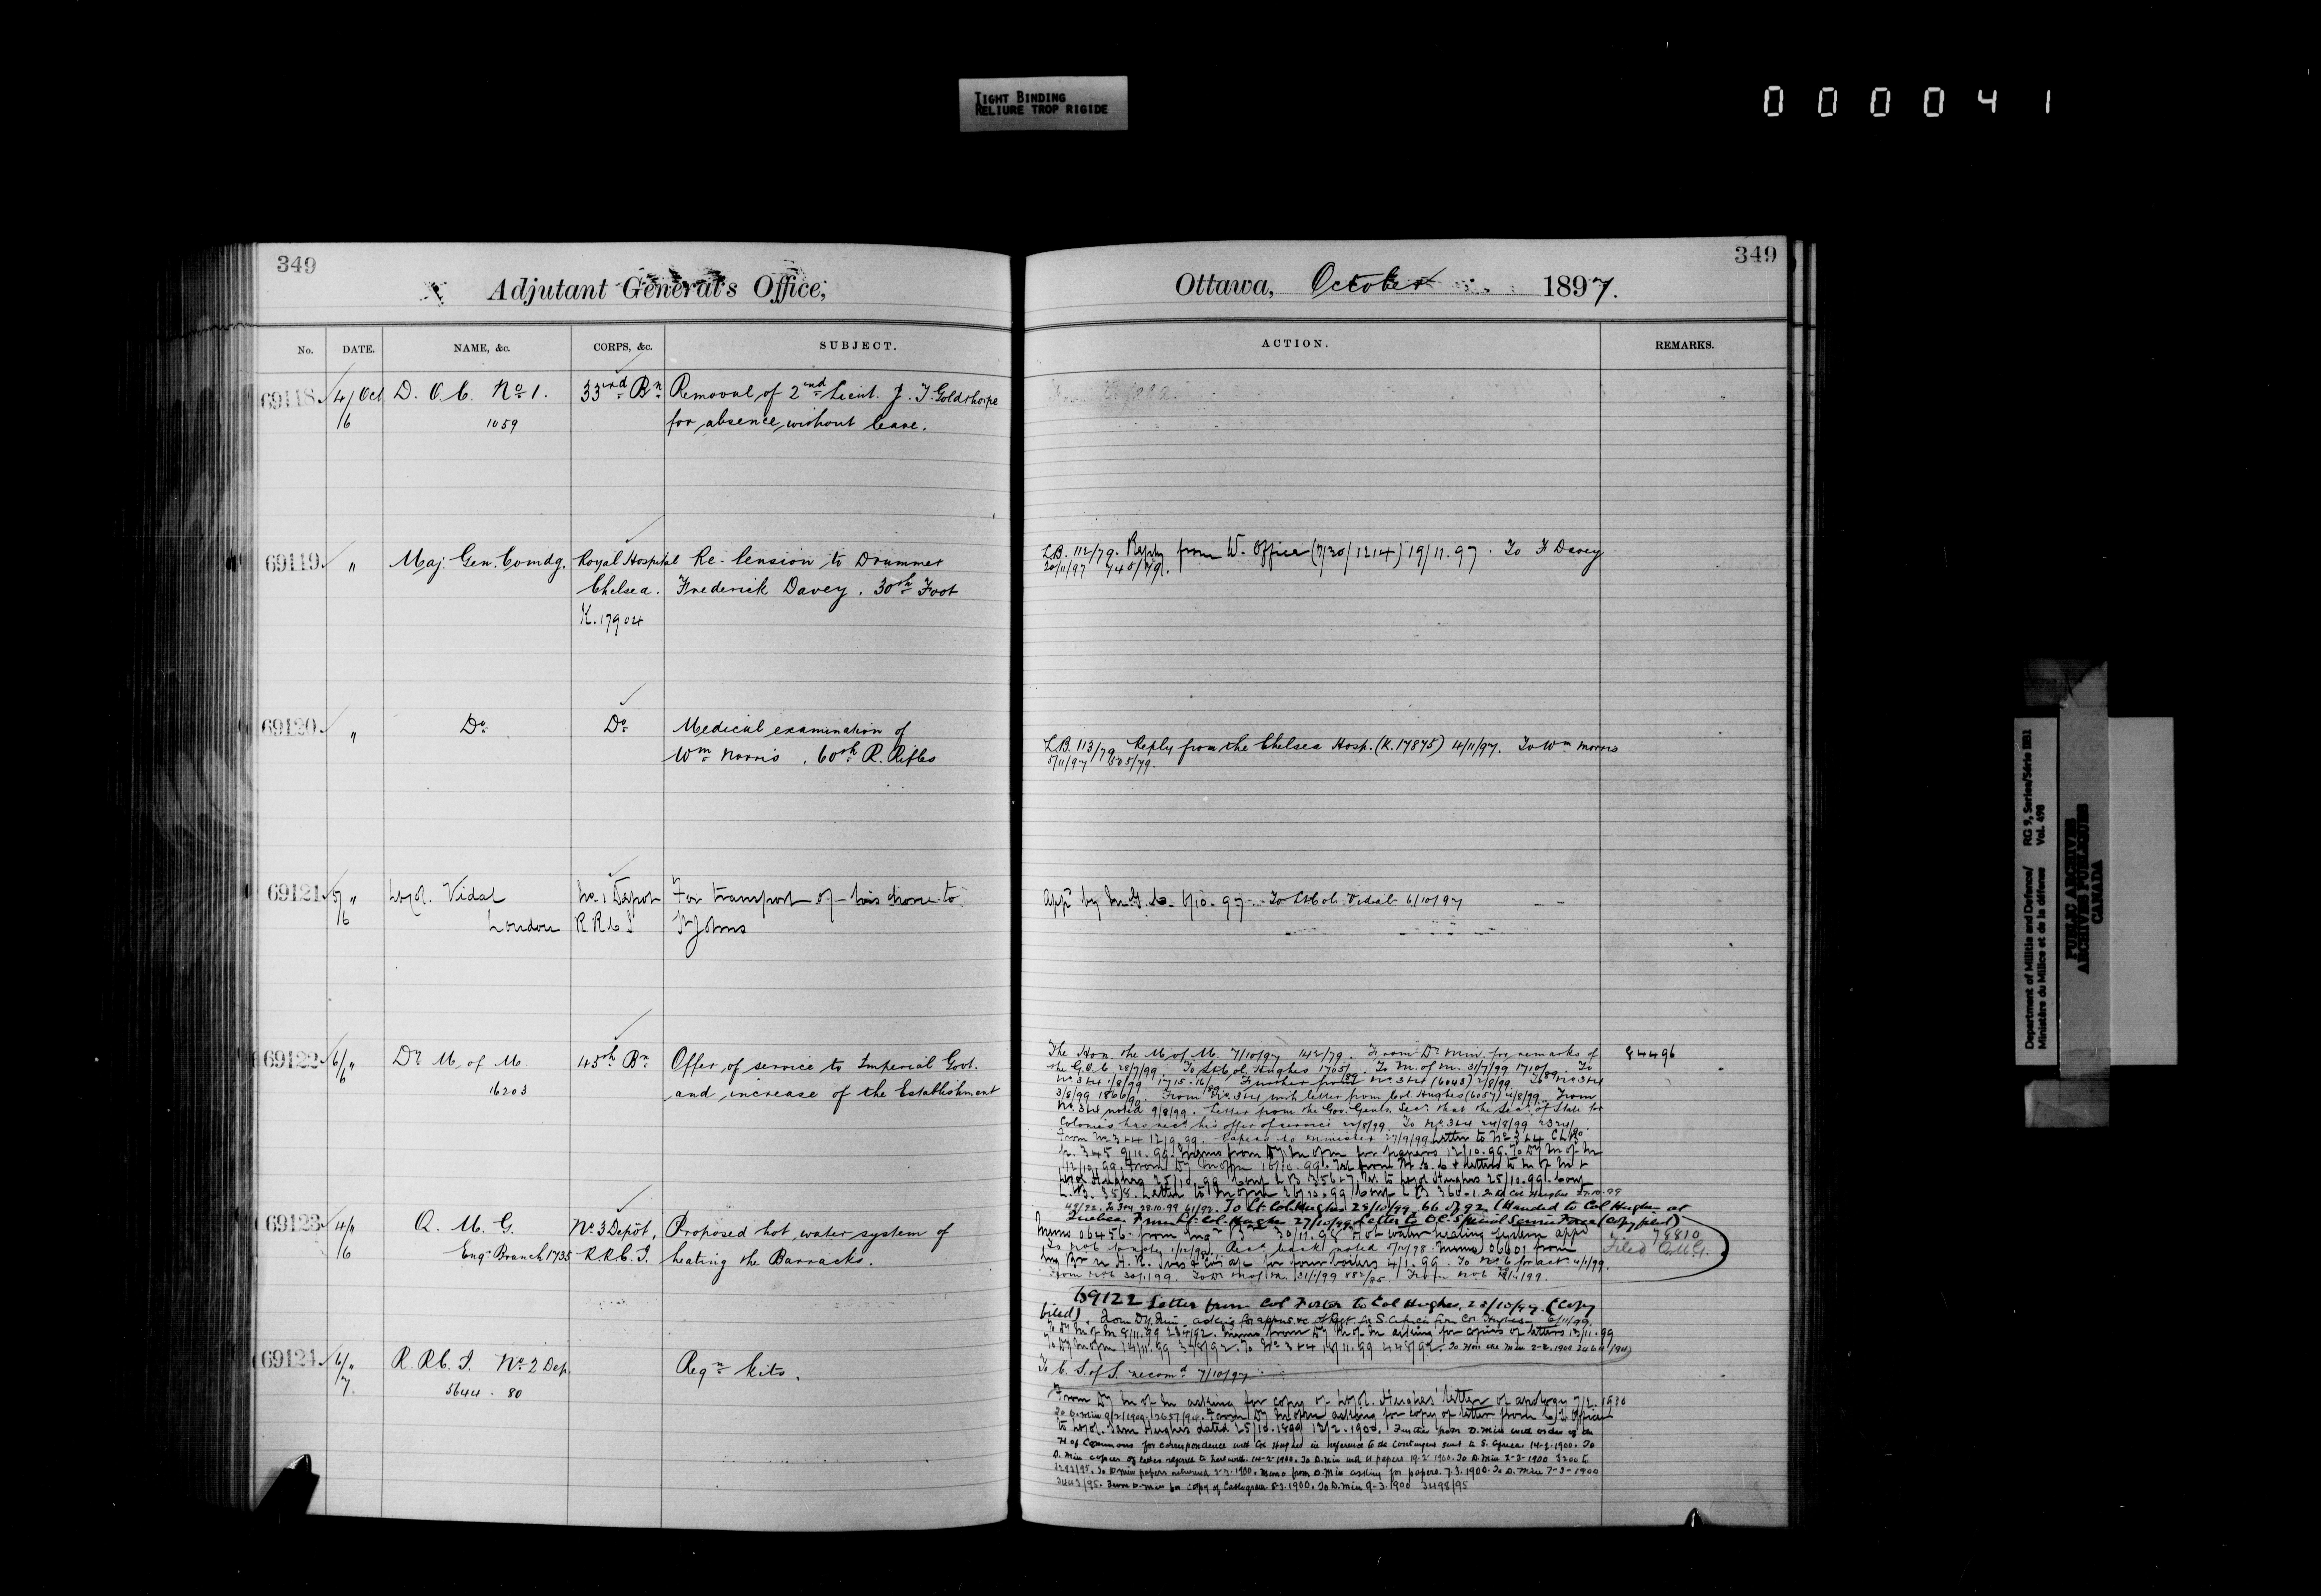 TIGHT BINDING
RELIURE TROP RIGIDE
000041
349
Adjutant General's Office,
No. DATE. NAME, &c. CORPS, &c. SUBJECT.
69118 4/Oct D. O. C. No 1. 33rd Bn Removal of 2nd Lieut. J. T. Goldthorpe
/6 1059 for absence without leave.
69119 " Maj. Gen. Comdg. Royal Hospital Re- Pension to Drummer
Chelsea. Frederick Davey. 30th Foot
K. 17904
69120 " Do Do Medical examination of
Wm Norris, 60th R. Rifles
69121 5/" Lt Col. Vidal No. 1 Depot For transport of his horse to
/6 London R R C I St Johns
69122 6/" Dr M. of M. 45th Bn Offer of service to Imperial Govt.
/6 16203 and increase of the Establishment
69123 4/" Q. M. G. No 3 Depôt, Proposed hot water system of
/6 Engr Branch 1735 R.R.C.I. heating the Barracks.
69124 6/" R. R C. I. No 2 Dep. Reqn kits.
/7 5644 . 80
349
Ottawa, October 1897.
ACTION. REMARKS.
L.B. 112/79. Reply from W. Office (7/30/1214) 19/11.97. To F Davey
20/11/97
L.B. 113/79 Reply from the Chelsea Hosp. (K. 17875) 4/11/97. To Wm Norris
5/11/97 505/79.
Appd by M.G.C. 6/10.97. To Lt Col. Vidal 6/10/97
The Hon. the M of M. 7/10/97 142/79. From Dr Min. for remarks of 84496
the G.O.C. 28/7/99. To Lt Col. Hughes To M. of M. 31/7/99
No. 3 & 4 1/8/99 Further from No. 3 & 4 (6043) 2/8/99. To No 3 & 4
3/8/99 From No. 3 & 4 with letter from Col Hughes (6057) 4/8/99. From
No. 3 & 4 noted 9/8/99. Letter from the Gov. Genls. Secy that the Secy of State for
Colonies has recd his offer of service 22/8/99. To No. 3 & 4 24/8/99
From No 3 & 4 12/9.99. Papers to Minister 27/9/99 Letter to No 3 & 4
9/10.99. Memo from Dy M of M for papers 12/10.99. To Dy M of M
12/10.99. From Dy M of M
Lt Col Hughes 25/10.99 to Lt Col Hughes 25/10.99.
Letter to M of M 26/10.99 To Lt Col Hughes 27.10.99
28.10.99 To Lt. Col. Hughes 29/10/99. 66 of 92 (Handed to Col Hughes at
Quebec. From Lt. Col. Hughes 27/10/99. Letter to O.C. Special Service Force (copy filed)
Memo 06456 from 30/11.98 Hot water heating system appd 78810
1/12/98. Recd back noted Memo 06601 from Filed Q.M.G.
for four boilers 4/1.99. To No. 6 for act. 4/1/99.
From No 6 To Dr M of M 31/1/99 From No 6
69122 Letter from Col Foster to Col Hughes, (Copy
filed). From Dy. Min. asking for S. Africa from Col Hughes 6/11/99.
To Dy M of M 8/11.99 Memo from Dy M of M asking for copies of letters 13/11.99
To Dy M of M 14/11.99 348/92. To No 3 & 4 18/11.99 448/92. To Hon the Min 2-2.1900
To C. S. of S. recomd 7/10/97
From Dy M of M asking for copy of Lt Col. Hughes' letter of apology 7/2.1900
To D. Min 9/2/1900. From Dy M of M asking for copy of letter from
to Lt Col. Sam Hughes dated 25/10.1899 13/2.1900. Further from D. Min with order of the
H of Commons for correspondence with Col Hughes in reference to the contingent sent to S. Africa 14-2-1900. To
D. Min copies of letters referred to herewith. 14-2-1900. To D. Min with 11 papers 19-2-1900. To D. Min 2-3-1900
To D. Min papers returned 2-3-1900. Memo from D. Min asking for papers. 7.3.1900. To D. Min 7-3-1900
3443/95. From D. Min for copy of Cablegram 8-3.1900. To D. Min 9-3.1900 3498/95
Department of Militia and Defence/ RG 9, Series/Série IIB1
Ministère du Milice et de la défense Vol. 498
PUBLIC ARCHIVES
ARCHIVES PUBLIQUES
CANADA